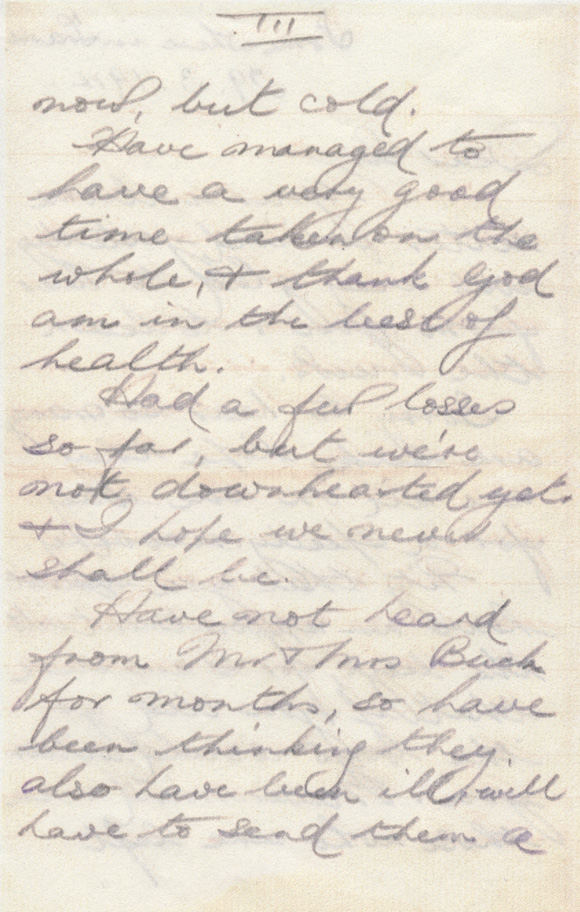 III
now, but cold.
Have managed to
have a very good
time taken on the
whole, & thank God
am in the best of
health.
Had a few losses
so far, but we're
not downhearted yet.
& I hope we never
shall be.
Have not heard
from Mr & Mrs Buck
for months, so have
been thinking they
also have been ill, will
have to send them a